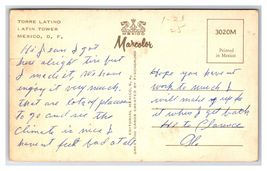 TORRE LATINO
LATIN TOWER
MEXICO, D. F.
MEXICO
Marcolor
3020M
Printed
in Mexico
1-21
25
Hi Jean I got
here alright tire but
I made it. We have
enjoy it very much.
That are lots of places
to go and see the
climate is nice I
havent felt bad at all.
Hope you havent
work to much I
will make up to
it when I get back
Hi to Clarence
Flo